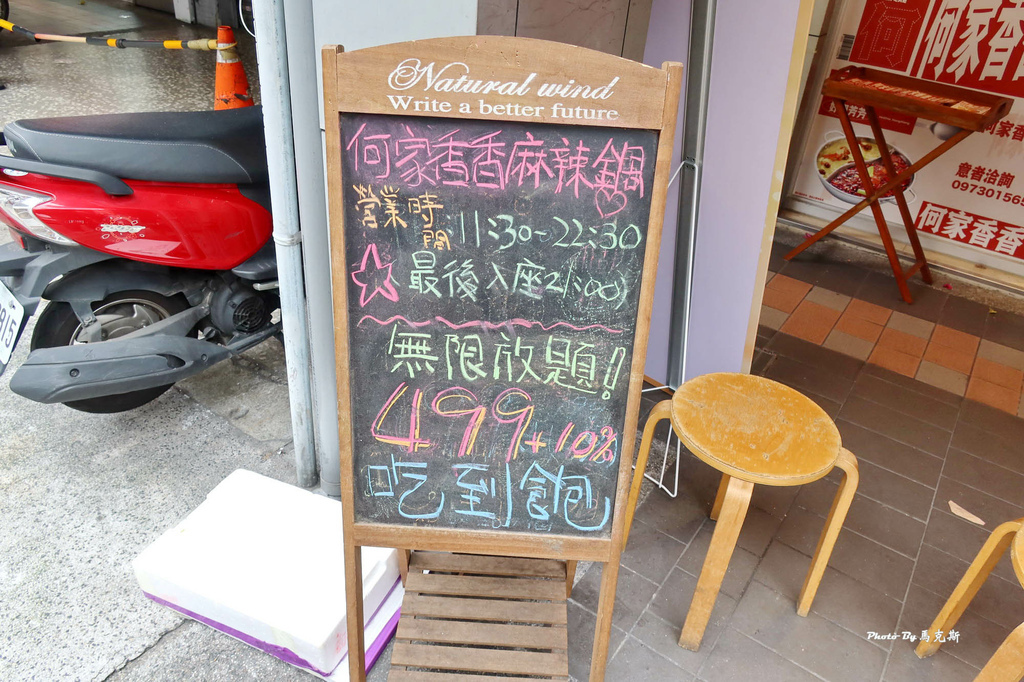 Natural wind
Write a better future
何家香香麻辣鍋
營業時間:11:30-22:30
☆最後入座21:00)
無限放題!
499+10%
吃到飽
何
何家香香
意者洽詢
09730156
何家香香
Photo-By 馬克斯